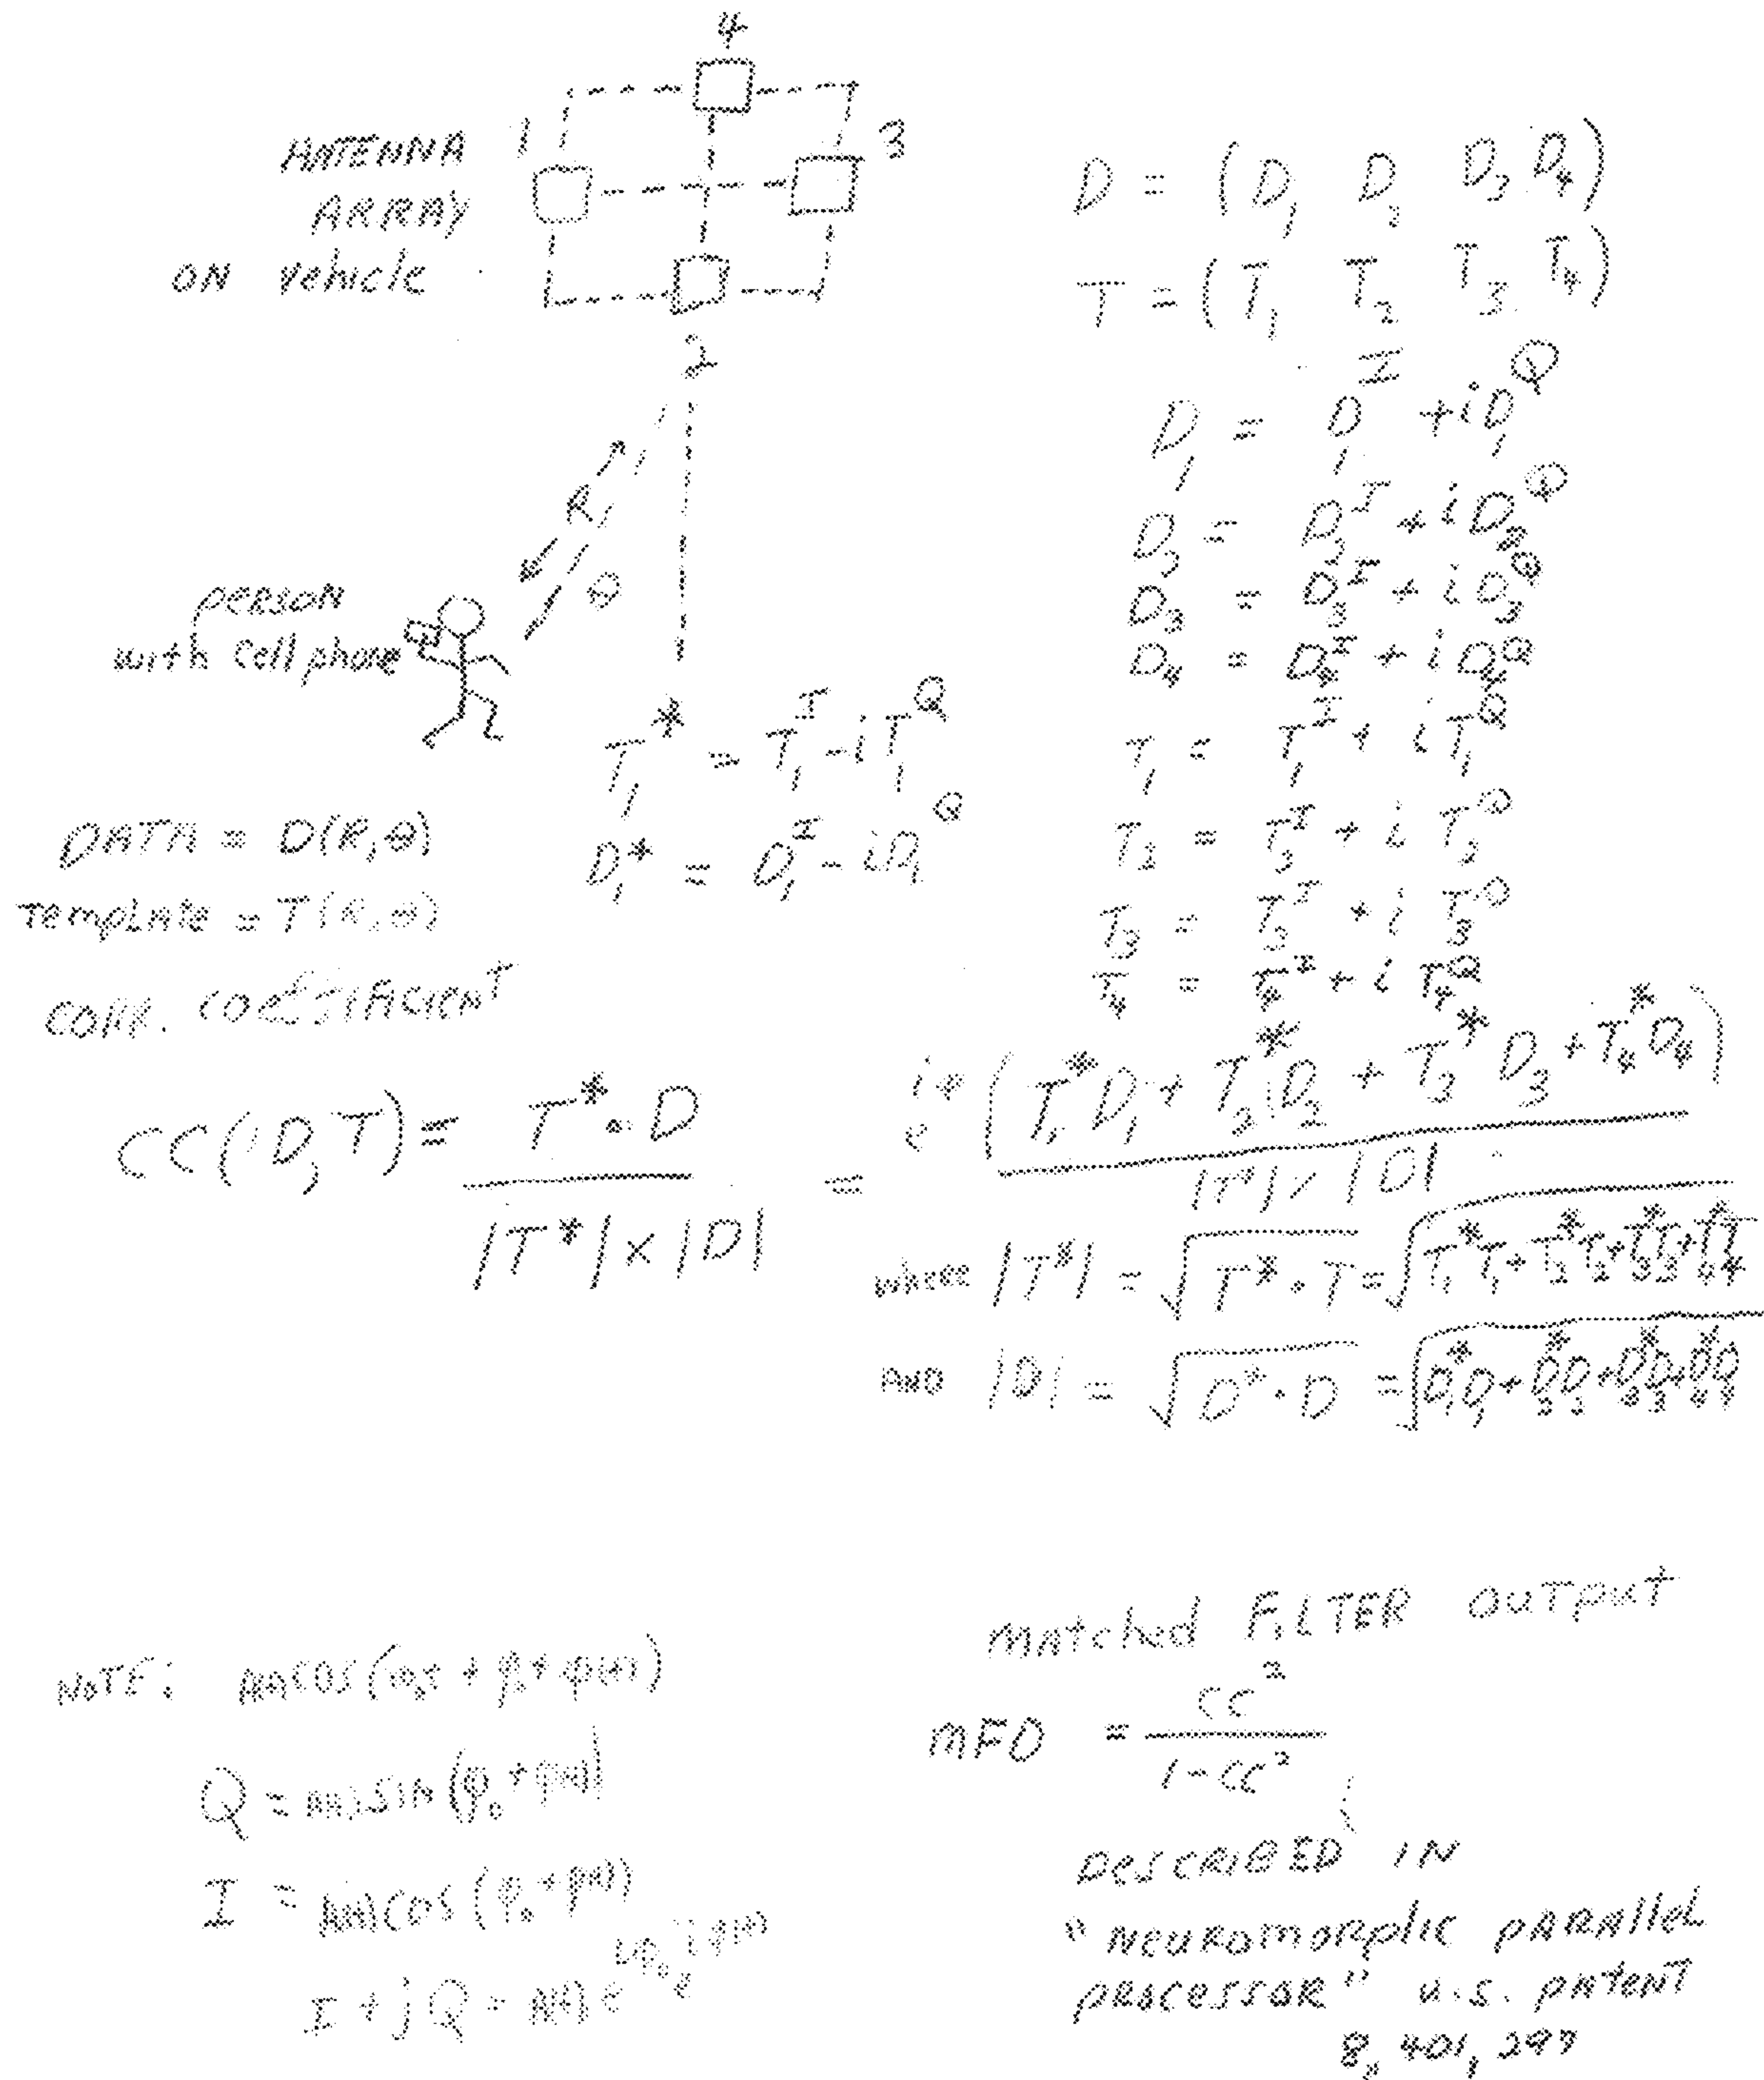 4
1
3
ANTENNA
ARRAY
ON Vehicle
2
R
θ
PERSON
with Cell phone
D = (D₁ D₂ D₃ D₄)
T = (T₁ T₂ T₃ T₄)
D₁ = D₁^I + i D₁^Q
D₂ = D₂^I + i D₂^Q
D₃ = D₃^I + i D₃^Q
D₄ = D₄^I + i D₄^Q
T₁ = T₁^I + i T₁^Q
T₂ = T₂^I + i T₂^Q
T₃ = T₃^I + i T₃^Q
T₄ = T₄^I + i T₄^Q
T₁* = T₁^I - i T₁^Q
D₁* = D₁^I - i D₁^Q
DATA = D(R,θ)
Template = T(R,θ)
CORR. COEFFIFICIENT
CC(D,T) = T*·D / |T*| × |D| = e^iφ (T₁*D₁ + T₂*D₂ + T₃*D₃ + T₄*D₄) / |T*| × |D|
where |T*| = √(T*·T) = √(T₁*T₁ + T₂*T₂ + T₃*T₃ + T₄*T₄)
AND |D| = √(D*·D) = √(D₁*D₁ + D₂*D₂ + D₃*D₃ + D₄*D₄)
NOTE: A(t)COS(ω₀t + φ₀ + φ(t))
Q = A(t)SIN(φ₀ + φ(t))
I = A(t)COS(φ₀ + φ(t))
I + jQ = A(t) e^iφ₀ e^iφ(t)
Matched FILTER OUTPUT
MFO = CC² / 1-CC²
DESCRIBED IN
"NEUROMORPHIC PARALLEL
PROCESSOR" U.S. PATENT
8,401,297